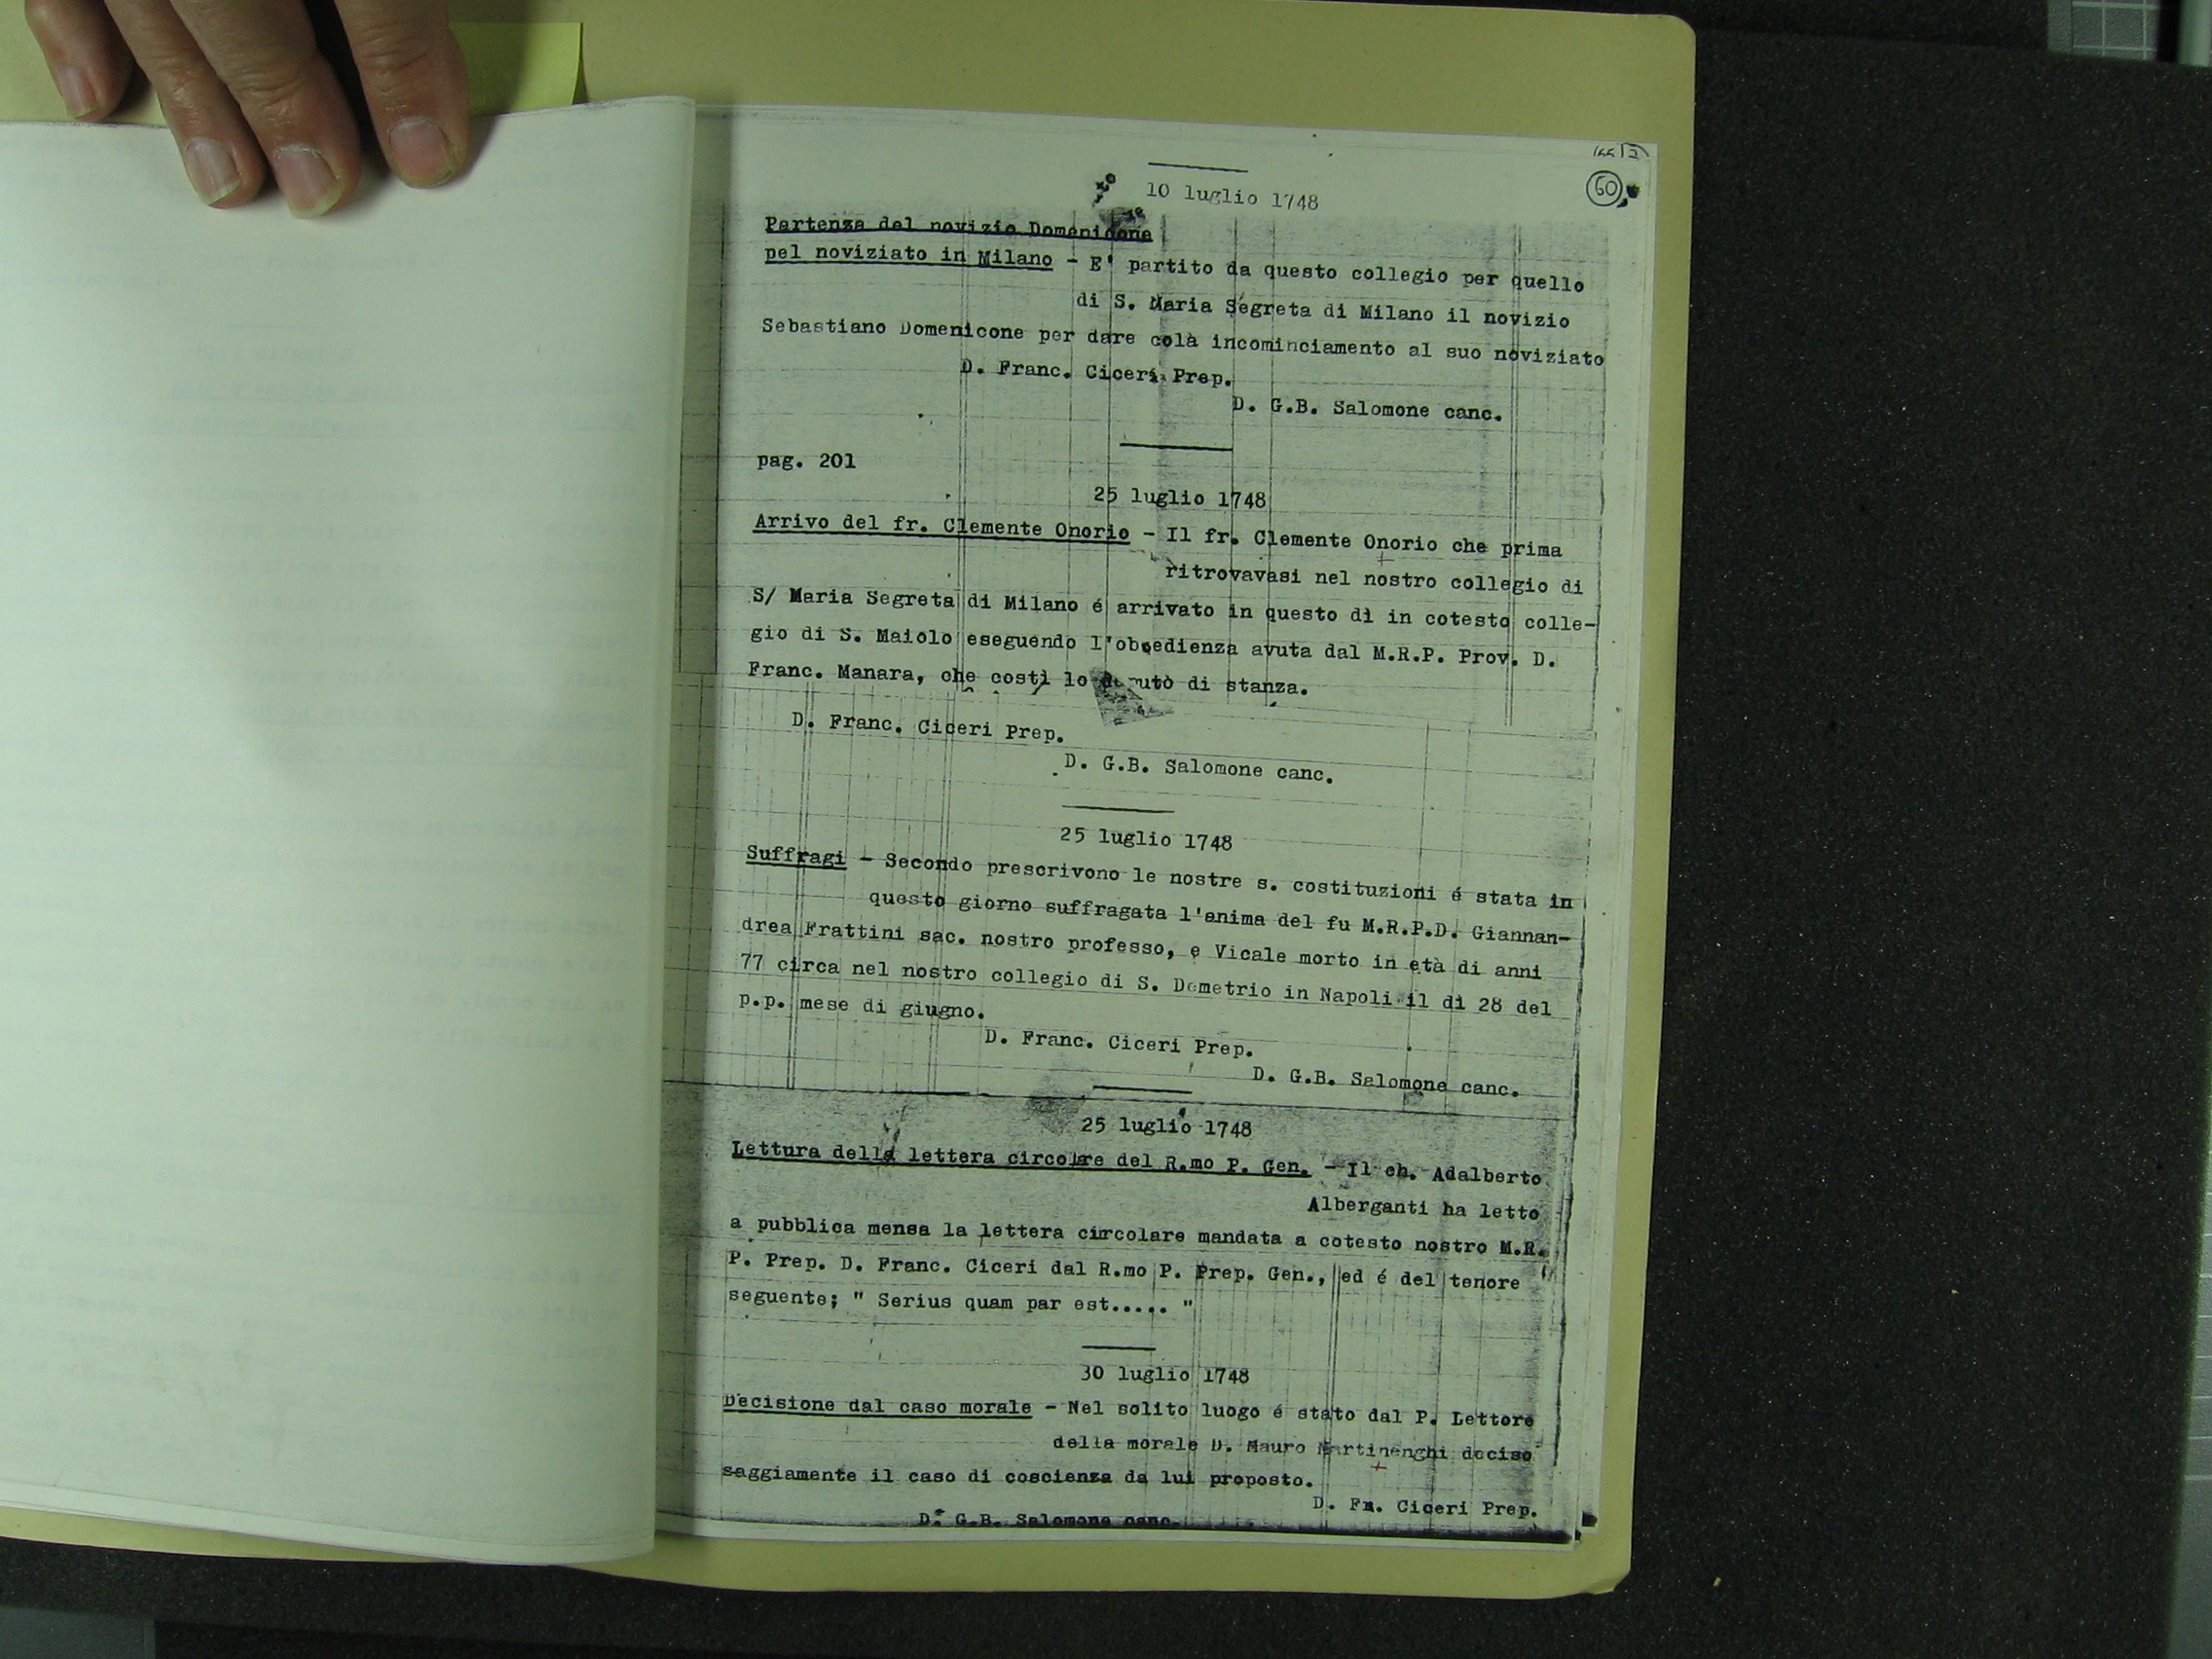 60
10 luglio 1748
Partenza del novizio Domenicone
pel noviziato in Milano - E' partito da questo collegio per quello
di S. Maria Segreta di Milano il novizio
Sebastiano Domenicone per dare colà incominciamento al suo noviziato
D. Franc. Ciceri Prep.
D. G.B. Salomone canc.
pag. 201
25 luglio 1748
Arrivo del fr. Clemente Onorio - Il fr. Clemente Onorio che prima
ritrovavasi nel nostro collegio di
S/ Maria Segreta di Milano é arrivato in questo dì in cotesto colle-
gio di S. Maiolo eseguendo l'obbedienza avuta dal M.R.P. Prov. D.
Franc. Manara, che costì lo deputò di stanza.
D. Franc. Ciceri Prep.
D. G.B. Salomone canc.
25 luglio 1748
Suffragi - Secondo prescrivono le nostre s. costituzioni é stata in
questo giorno suffragata l'anima del fu M.R.P.D. Giannan-
drea Frattini sac. nostro professo, e Vicale morto in età di anni
77 circa nel nostro collegio di S. Demetrio in Napoli il dì 28 del
p.p. mese di giugno.
D. Franc. Ciceri Prep.
D. G.B. Salomone canc.
25 luglio 1748
Lettura della lettera circolare del R.mo P. Gen. - Il ch. Adalberto
Alberganti ha letto
a pubblica mensa la lettera circolare mandata a cotesto nostro M.R.
P. Prep. D. Franc. Ciceri dal R.mo P. Prep. Gen., ed é del tenore
seguente; " Serius quam par est..... "
30 luglio 1748
Decisione dal caso morale - Nel solito luogo é stato dal P. Lettore
della morale D. Mauro Martinenghi deciso
saggiamente il caso di coscienza da lui proposto.
D. Fr. Ciceri Prep.
D. G.B. Salomone canc.